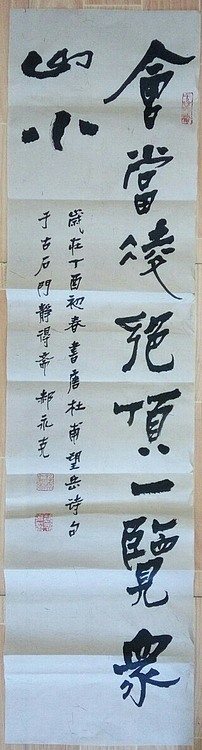 會當凌絕頂一覽眾
山小
歲在丁酉初春書唐杜甫望岳詩句
于古石門靜得齋郝永克